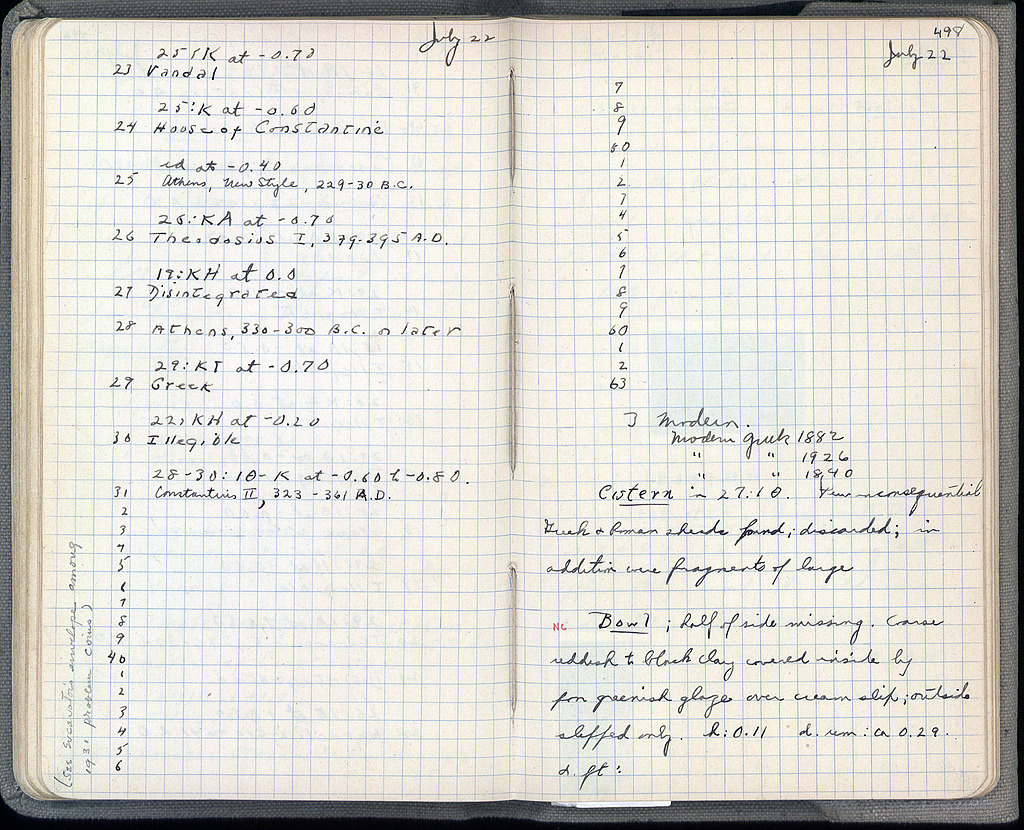 July 22
25:K at -0.70
23 Vandal
25:K at -0.60
24 House of Constantine
id at -0.40
25 Athens, New Style, 229-30 B.C.
26:KA at -0.70
26 Theodosius I, 379-395 A.D.
19:KH at 0.0
27 Disintegrated
28 Athens, 330-300 B.C. or later
29:KT at -0.70
29 Greek
22:KH at -0.20
30 Illegible
28-30:10-K at -0.60 to -0.80.
31 Constantius II, 323-361 A.D.
2
3
4
5
6
7
8
9
40
1
2
3
4
5
6
(See excavator's envelope among
1931 problem coins)
498
July 22
7
8
9
50
1
2
3
4
5
6
7
8
9
60
1
2
63
3 Modern.
Modern Greek 1882
" " 1926
" " 1840
Cistern in 27:10. Few inconsequential
Greek & Roman sherds found; discarded; in
addition were fragments of large
NC Bowl; half of side missing. Coarse
reddish to black clay covered inside by
greenish glaze over cream slip; outside
slipped only. h: 0.11 d. rim: ca 0.29.
d. ft: